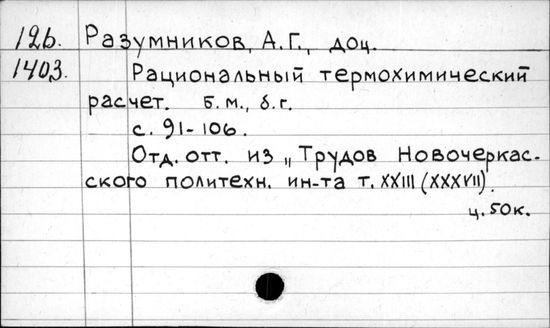 12б. Разумников, А.Г., доц.
1403. Рациональный термохимический
расчет. б.м., б.г.
с. 91-106.
Отд. отт. из „Трудов Новочеркас-
ского политехн. ин-та т. XXIII (XXXVII).
ц. 50к.